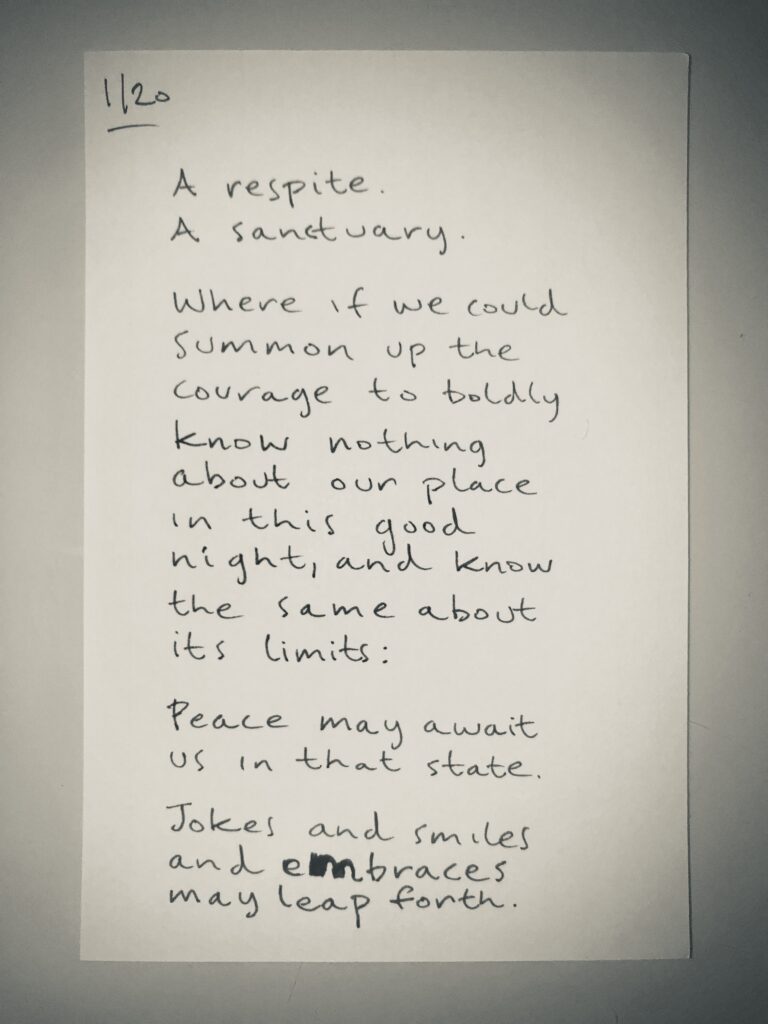 1/20
A respite.
A sanctuary.
Where if we could
summon up the
courage to boldly
know nothing
about our place
in this good
night, and know
the same about
its limits:
Peace may await
us in that state.
Jokes and smiles
and embraces
may leap forth.